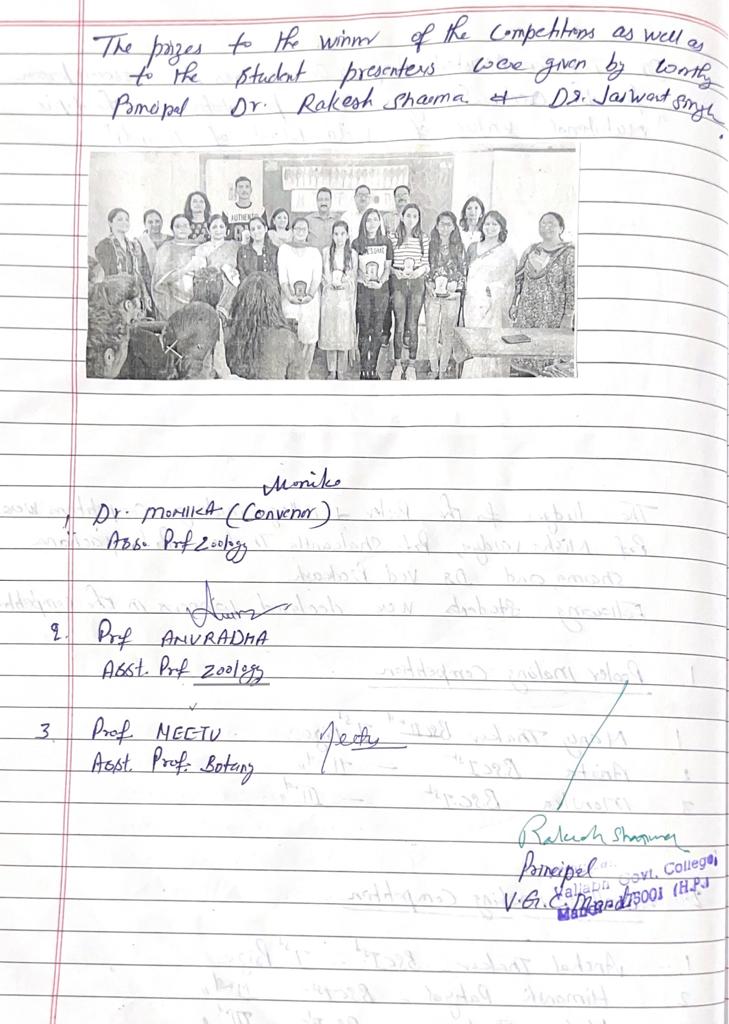 The prizes to the winner of the Competitions as well as
to the student presenters were given by worthy
Principal Dr. Rakesh Sharma & Dr. Jaswant Singh.
AUTHENTIC
Monika
1. Dr. MONIKA (Convenor)
Asso. Prof Zoology
2. Prof ANURADHA
Asst. Prof Zoology
3. Prof NEETU
Neetu
Asst. Prof. Botany
Rakesh Sharma
Principal
V.G.C. Mandi
Vallabh Govt. College,
Mandi-175001 (H.P.)